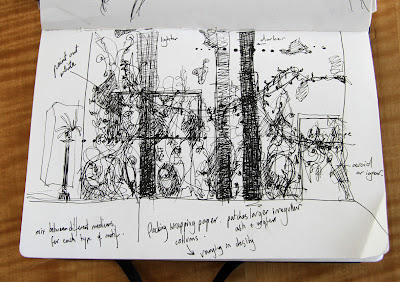 lighter
darker
paint out
white
aerosol
or ignore.
mix between different mediums
for each type of motif.
Packing wrapping paper. patches larger irregular
columns.
varying in density